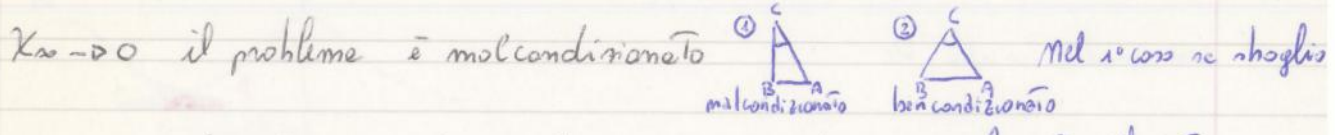 X∞ → 0 il problema è malcondizionato ① C B A malcondizionato ② C B A ben condizionato Nel 1° caso se sbaglio